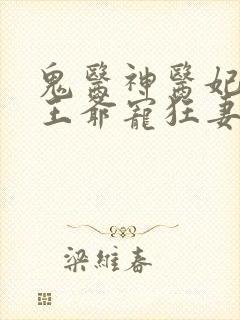 鬼醫神醫妃
王爺寵狂妻
梁維春